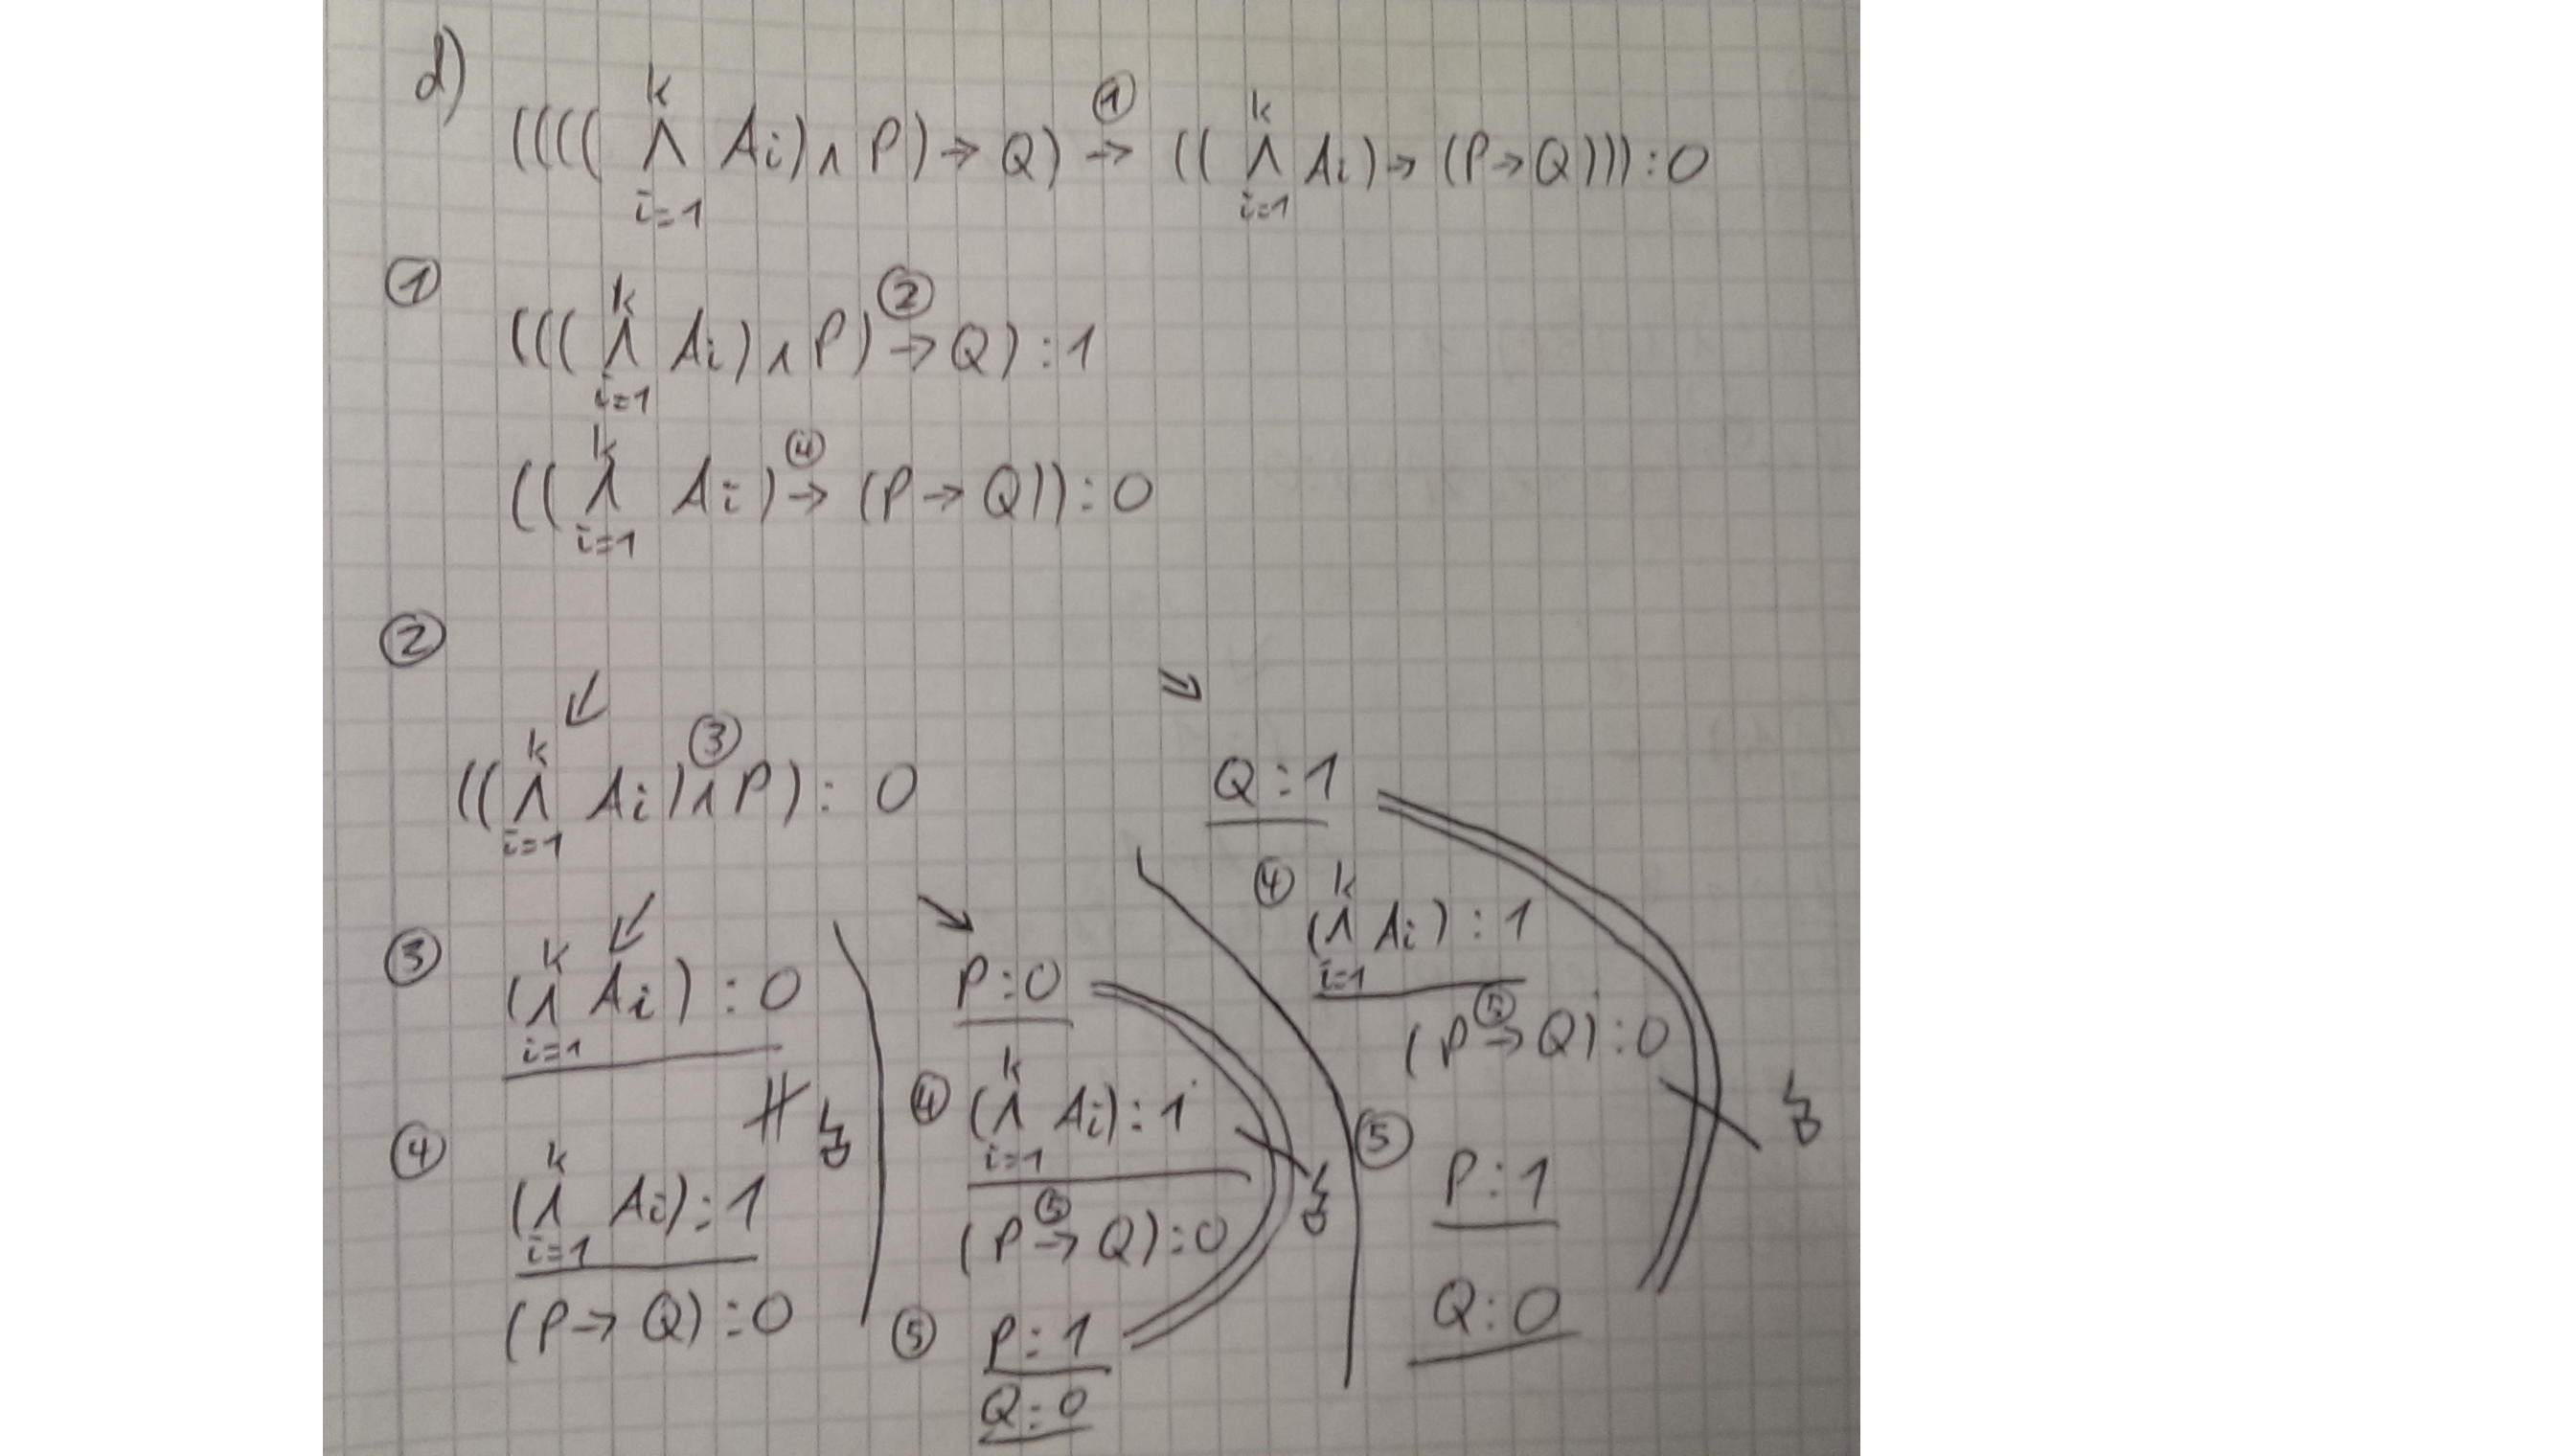 d)
((((⋀_{i=1}^{k} Ai) ∧ P) → Q) →① ((⋀_{i=1}^{k} Ai) → (P → Q))) : 0
① (((⋀_{i=1}^{k} Ai) ∧ P) →② Q) : 1
((⋀_{i=1}^{k} Ai) →④ (P → Q)) : 0
②
↙ ↘
((⋀_{i=1}^{k} Ai) ∧③ P) : 0
Q : 1
↙ ↘
③ (⋀_{i=1}^{k} Ai) : 0
④ (⋀_{i=1}^{k} Ai) : 1
(P → Q) : 0
P : 0
④ (⋀_{i=1}^{k} Ai) : 1
(P →⑤ Q) : 0
⑤ P : 1
Q : 0
④ (⋀_{i=1}^{k} Ai) : 1
(P →⑤ Q) : 0
⑤ P : 1
Q : 0